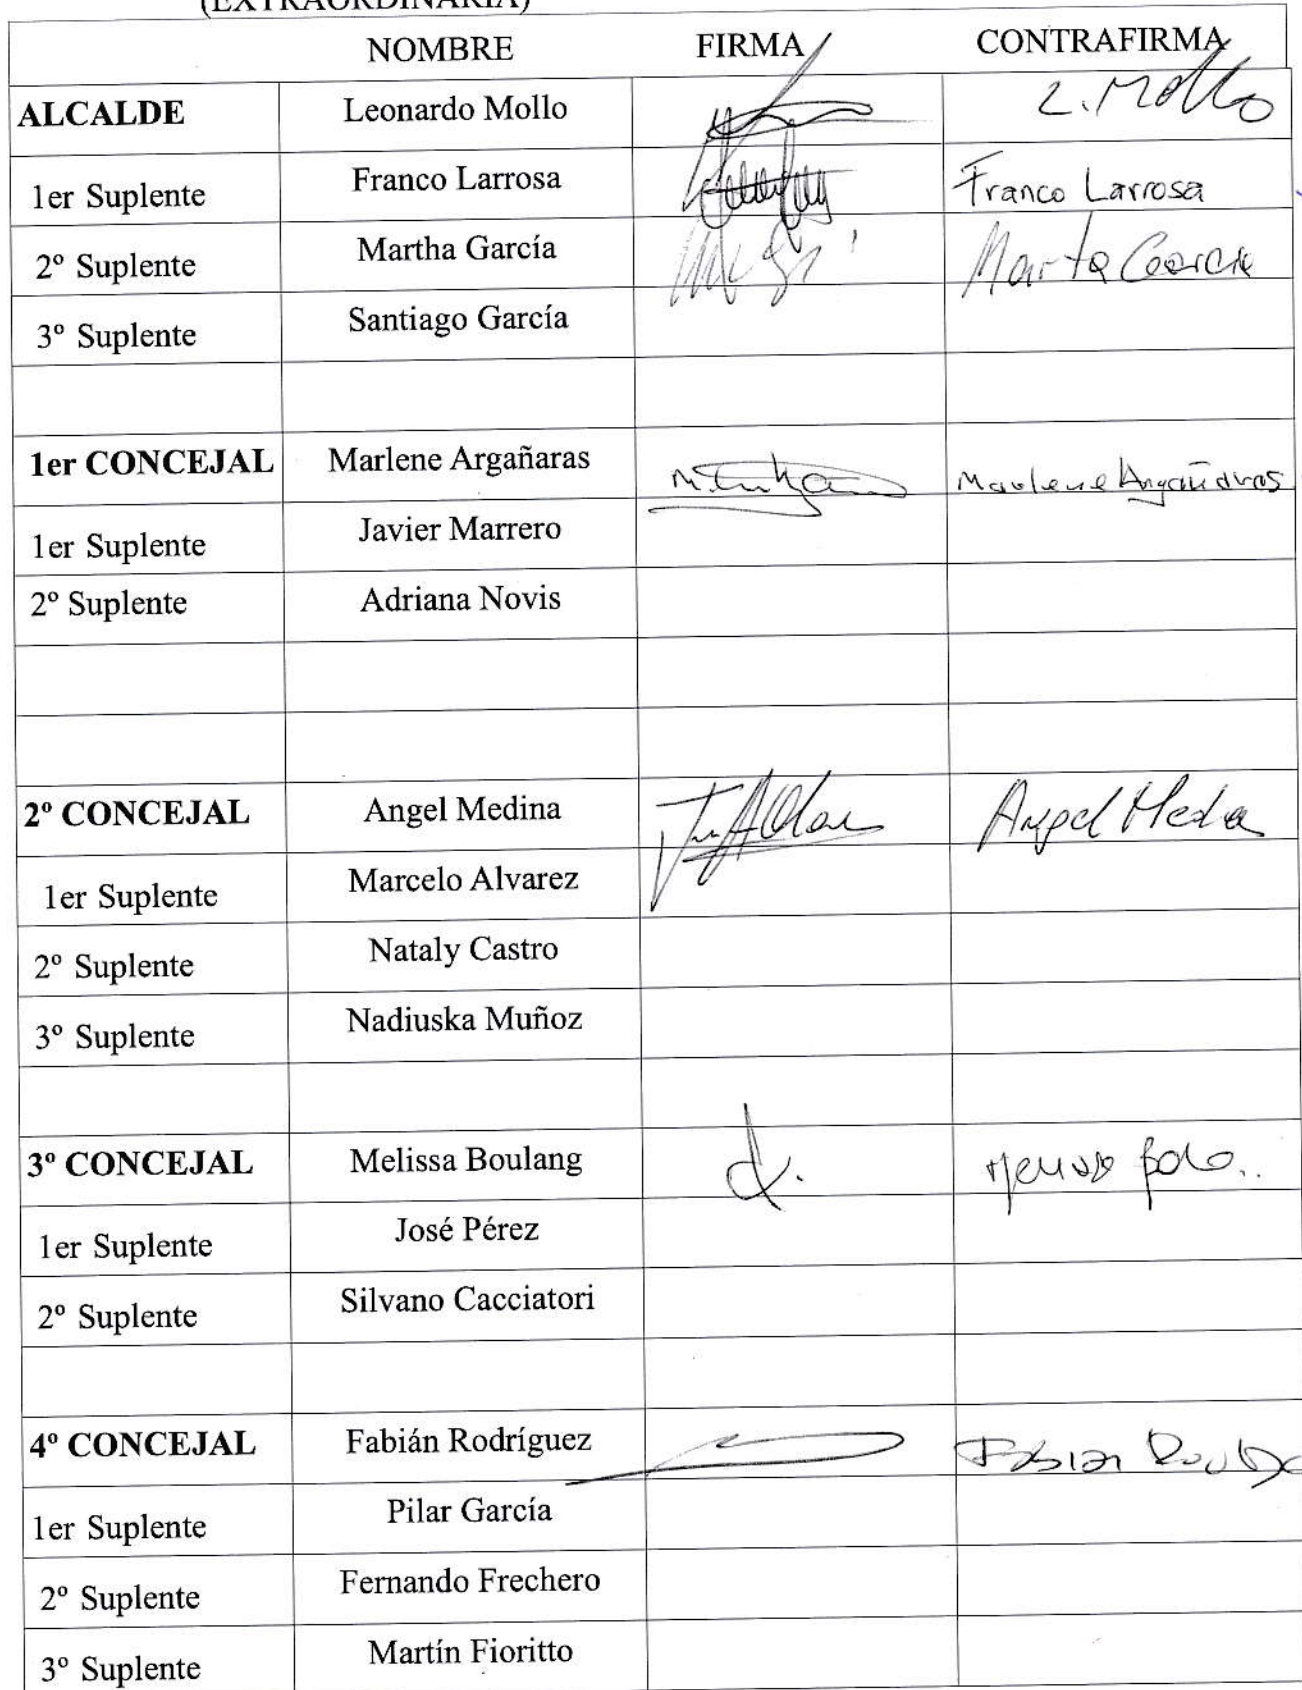 (EXTRAORDINARIA)
NOMBRE FIRMA CONTRAFIRMA
ALCALDE Leonardo Mollo L. Mollo
1er Suplente Franco Larrosa Franco Larrosa
2º Suplente Martha García Marta García
3º Suplente Santiago García
1er CONCEJAL Marlene Argañaras Marlene Argañaras
1er Suplente Javier Marrero
2º Suplente Adriana Novis
2º CONCEJAL Angel Medina Angel Media
1er Suplente Marcelo Alvarez
2º Suplente Nataly Castro
3º Suplente Nadiuska Muñoz
3º CONCEJAL Melissa Boulang
1er Suplente José Pérez
2º Suplente Silvano Cacciatori
4º CONCEJAL Fabián Rodríguez Fabian
1er Suplente Pilar García
2º Suplente Fernando Frechero
3º Suplente Martín Fioritto